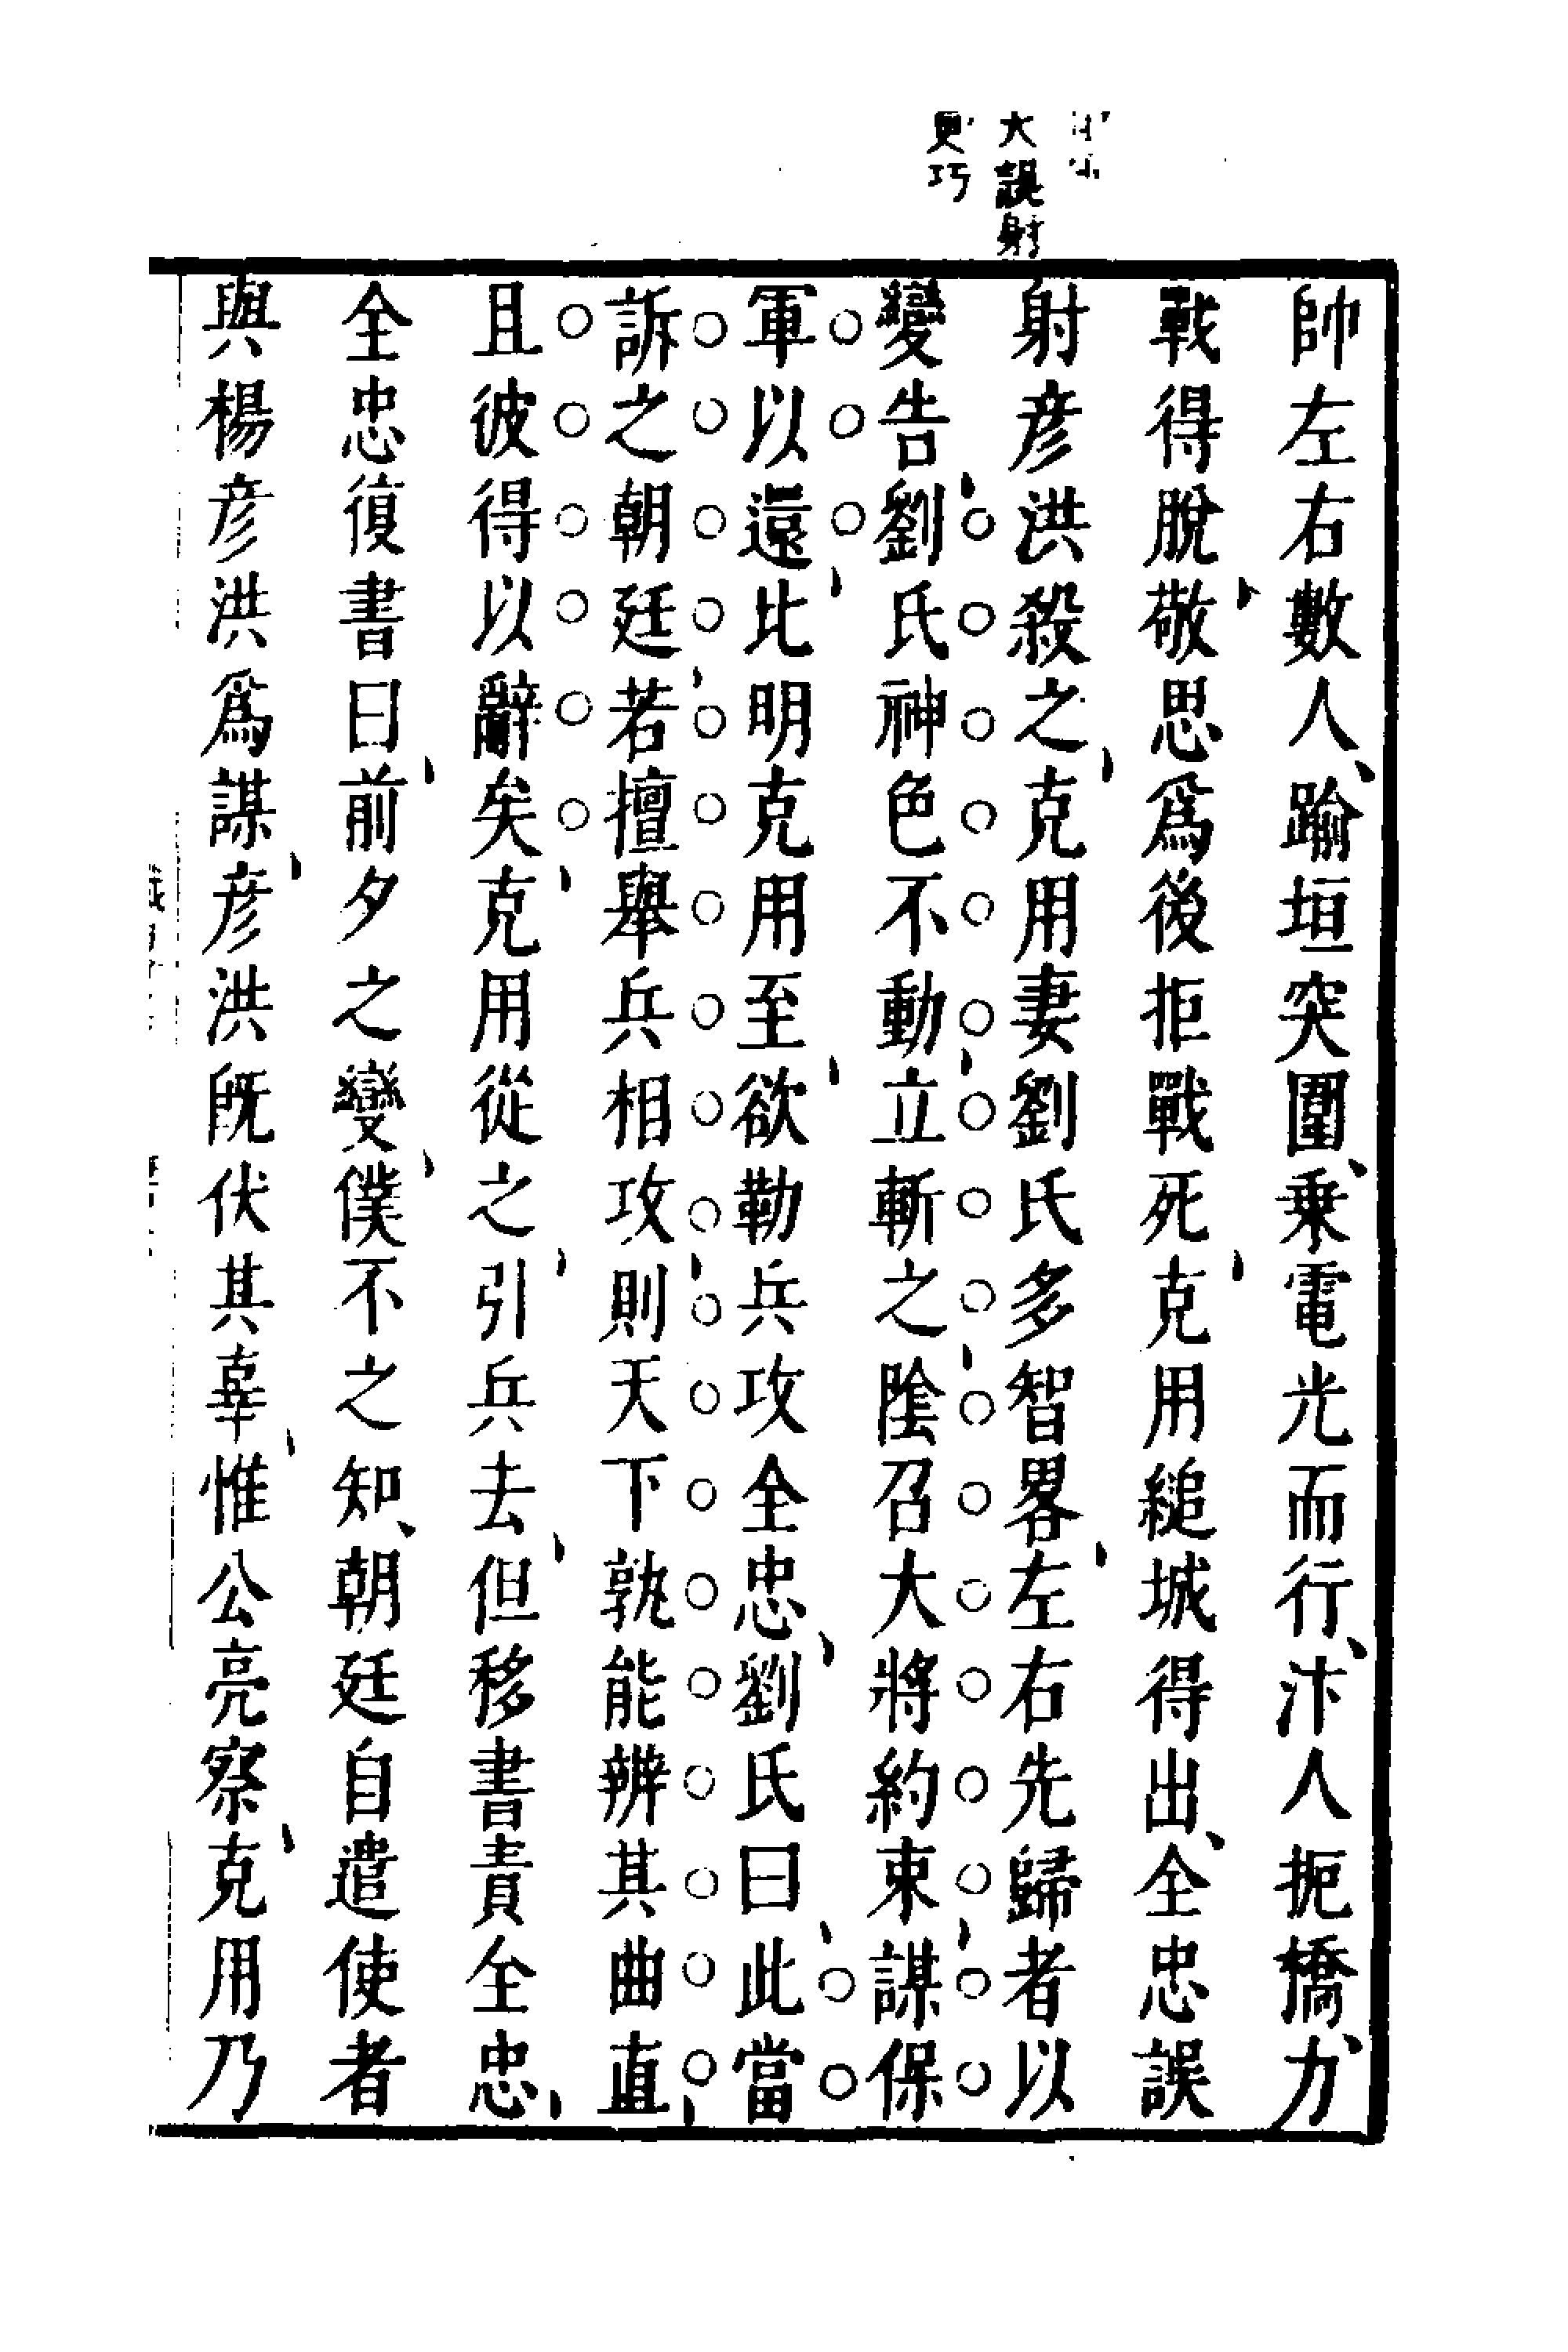 大誤射
更巧
帥左右數人踰垣突圍乗電光而行汴人扼橋力
戰得脫敬思爲後拒戰死克用縋城得出全忠誤
射彦洪殺之克用妻劉氏多智畧左右先歸者以
變告劉氏神色不動立斬之陰召大將約束謀保
軍以還比明克用至欲勒兵攻全忠劉氏曰此當
訴之朝廷若擅舉兵相攻則天下孰能辨其曲直
且彼得以辭矣克用從之引兵去但移書責全忠
全忠復書曰前夕之變僕不之知朝廷自遣使者
與楊彦洪爲謀彦洪旣伏其辜惟公亮察克用乃